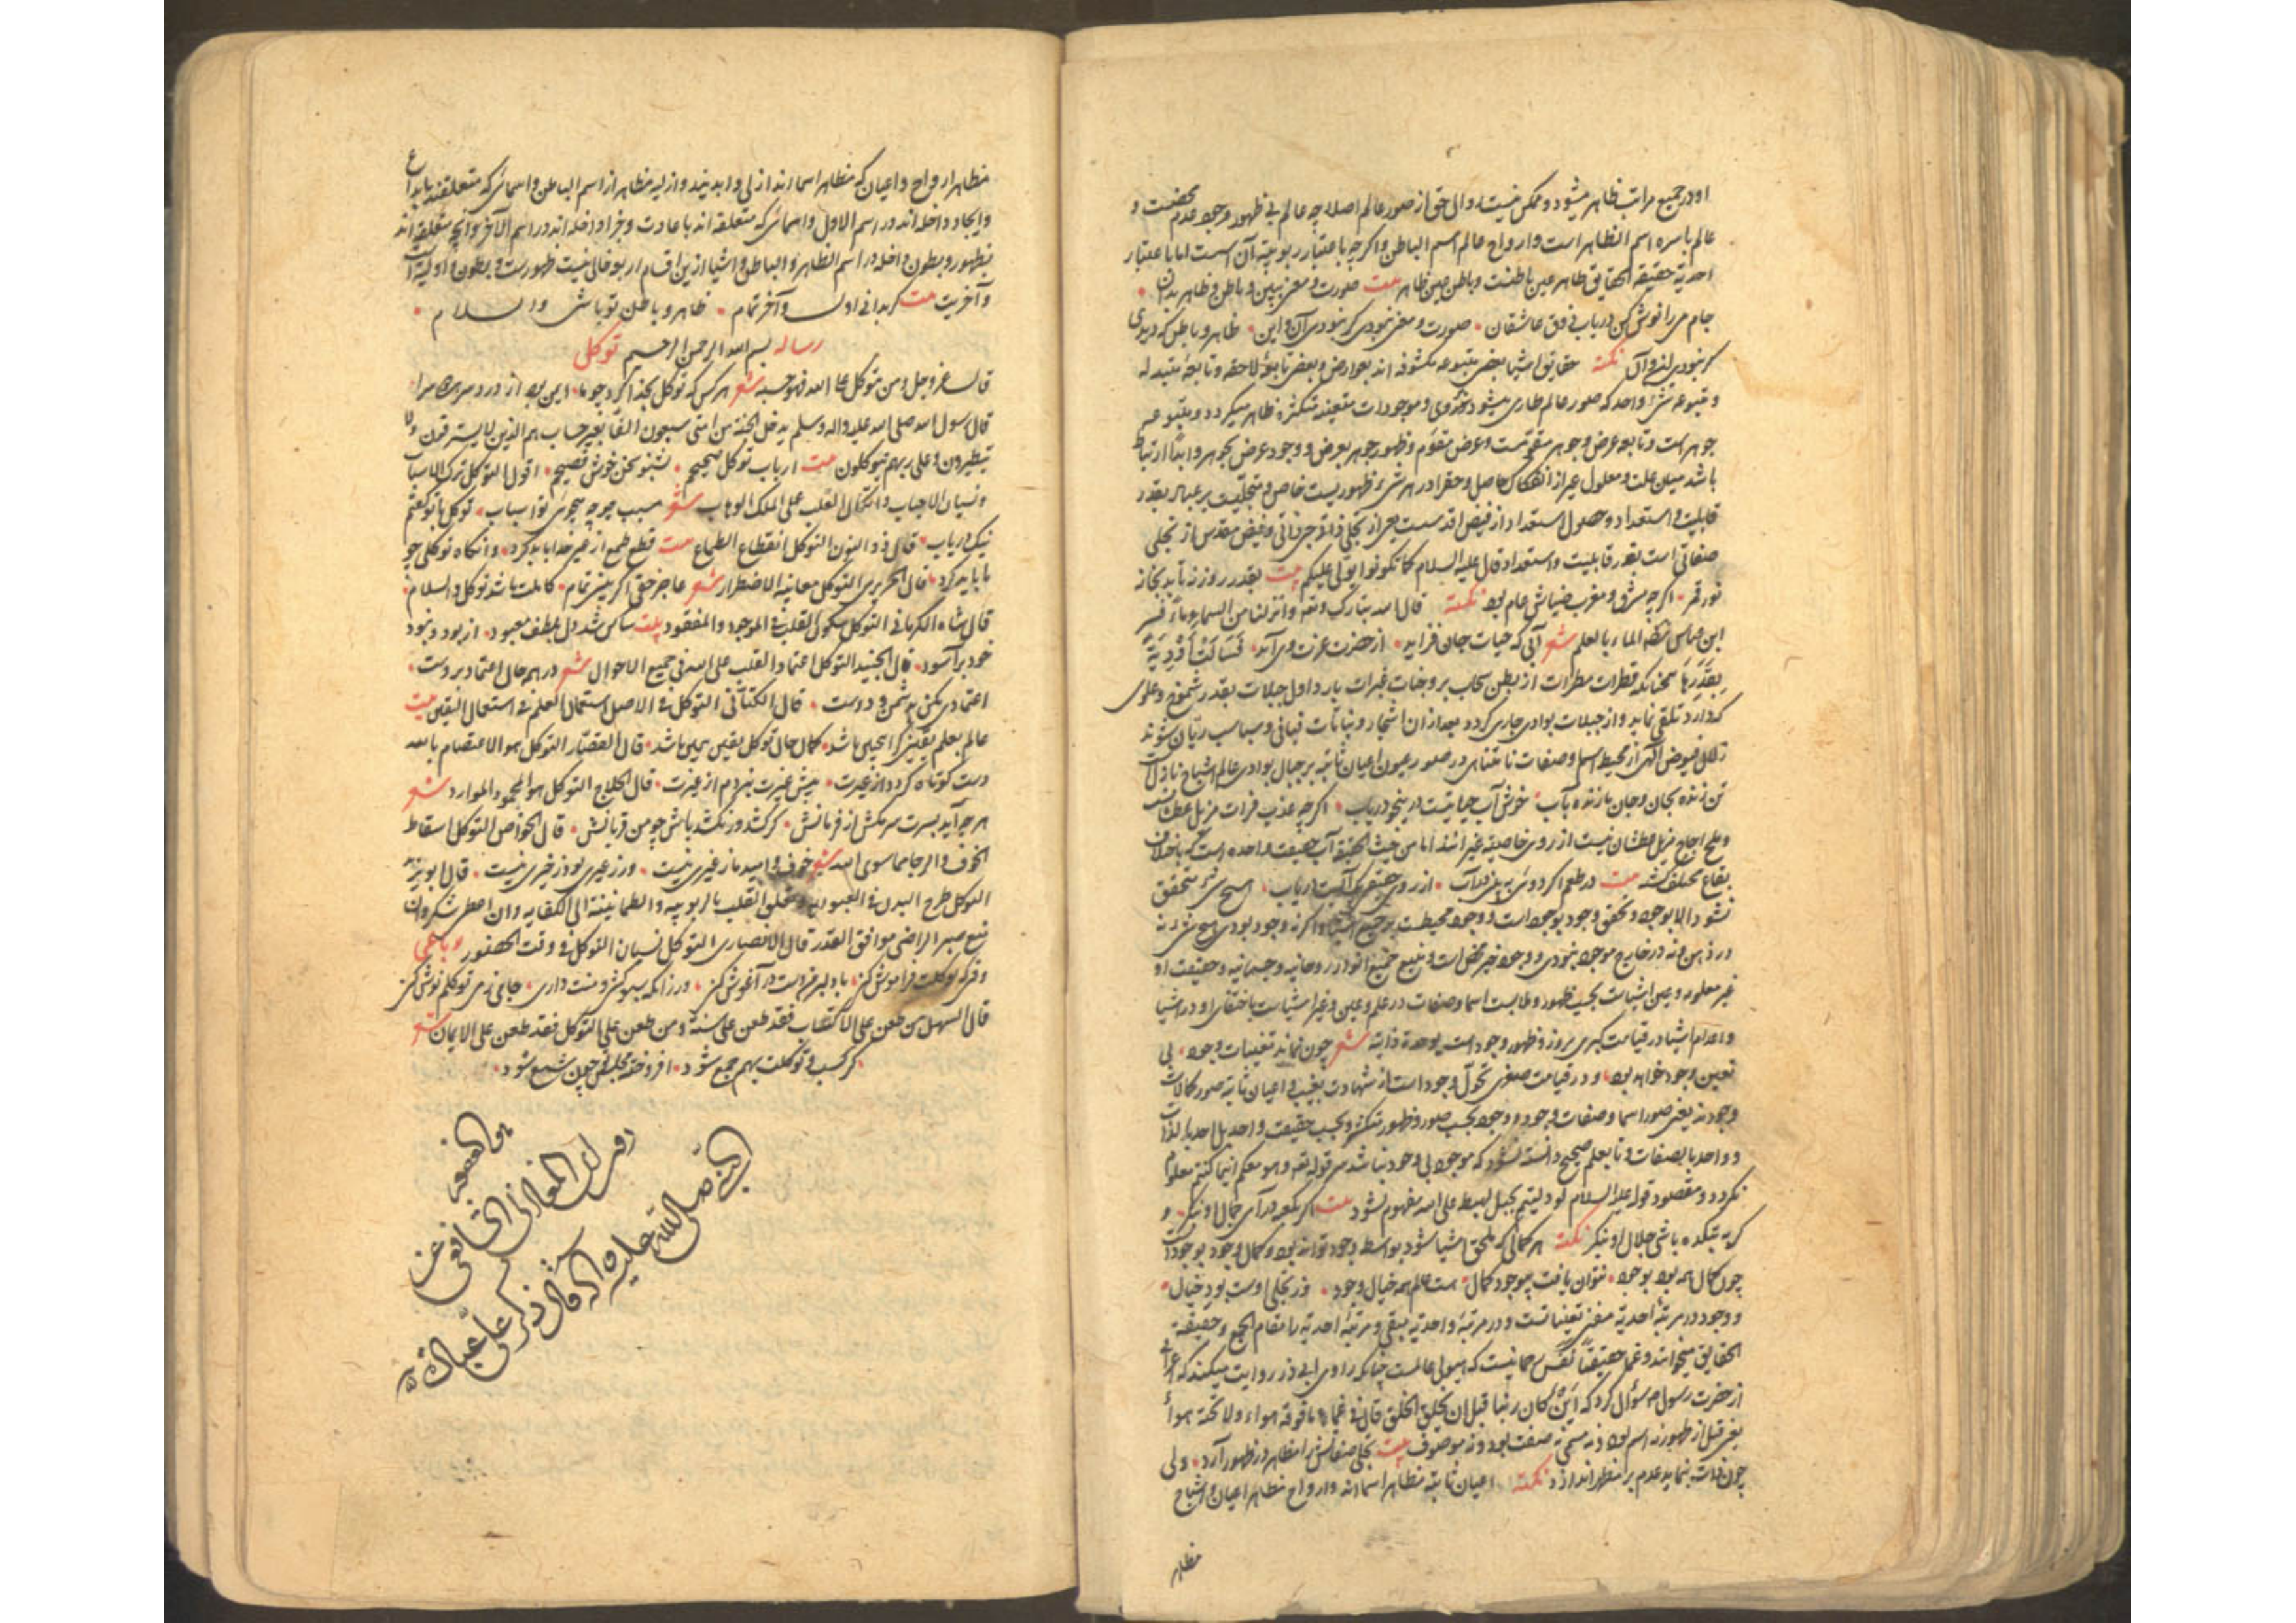 او در جمیع مراتب ظاهر میشود و ممکن نیست زوال حق از صور عالم اصلا چه عالم بی ظهور مرجود عدم محضست و
عالم باسره اسم الظاهر است و ارواح عالم اسم الباطن و اگرچه باعتبار ربوبیة آن اسمست اما باعتبار
احدیة حقیقة الحقایق ظاهر عین باطنست و باطن عین ظاهر بیت صورت و معنی ببین و باطن و ظاهر بدان
جام می را نوش کن دریاب ذوق عاشقان صورت و معنی نمودی گر نبودی آن و این ظاهر و باطن که دیدی
گر نبودی این و آن نکته حقایق اشیا بعضی متبوعه مکشوفه اند بعوارض و بعضی تابعهٔ لاحقه و تابعهٔ متبدله
و متبوعه شیٔ واحد که صور عالم طاری میشود بروی و موجودات متعینه متکثره ظاهر میگردد و متبوعه
جوهرست و تابعه عرض و جوهر مقومست و عرض متقوم و ظهور جوهر بعرض و وجود عرض بجوهر و ابدا ارتباط
باشد میان علت و معلول غیر از انفکاک حاصل و حق را در هر شیٔ ظهوریست خاص و متجلیست بر عباد بقدر
قابلیت و استعداد و حصول استعداد از فیض اقدسست یعنی از تجلی ذاتی و فیض مقدس از تجلی
صفاتی است بقدر قابلیت و استعداد قال علیه السلام کما تکونوا یولی علیکم بیت بقدر روزنه تابد بخانه
نور قمر اگرچه مشرق و مغرب ضیاش عام بود نکته قال الله تبارک و تعه و انزلنا من السماء ماءً فسر
ابن عباس رضه الماء بالعلم شعر آبی که حیات جان فزاید از حضرت عزت وی آید فَسَالَتْ اَوْدِیَةٌ
بِقَدَرِهَا همچنانکه قطرات مطرات از بطن سحاب بر وجنات غبرات بارد اول جبلات بقدر شموخ و علوی
که دارد تلقی نماید و از جبلات بوادی جاری گردد بعد از آن اشجار و نباتات فیافی و سباسب ریّان شوند
زلال فیوض الهی از محیط اسما و صفات نامتناهی در صور عیون اعیان ثابته بر جبال بوادی عالم اشباح نازلست
تن زنده بجان و جان بازنده بآب خوش آب حیاتیست درین بحر دریاب اگرچه عذب فرات مزیل عطش است
و ملح اجاج مزیل عطشان نیست از روی خاصیه غیر اند اما من حیث الحقیقة آب حقیقت واحده است که باختلاف
بقاع مختلف گشته بیت در طعم اگر دوئی پدید از روی حقیقت یک آبست دریاب هیچ شیٔ متحقق
نشود الا بوجود و تحقق وجود بوجود است و وجود محیطست بر جمیع اشیا و اگر نه وجود بودی هیچ شیٔ نه
در ذهن و نه در خارج موجود نبودی و وجود خیر محض است و منبع جمیع انوار روحانیه و جسمانیه و حقیقت او
غیر معلومه و عین اشیاست بحسب ظهور و ملابست اسما و صفات در علم و عین و غیر اشیاست باختفای او در اشیا
و اعدام اشیا در قیامت کبری بروز و ظهور وجود است بوحدة ذاتیه شعر چون نماند تعینات وجود بی
تعین وجود خواهد بود و در قیامت صغری تحوّل وجود است از شهادت بغیب و اعیان ثابته صور کمالات
وجودند یعنی صور اسما و صفات وجود و وجود بحسب صور و ظهور متکثر و بحسب حقیقت واحد بل احد بالذات
و واحد بالصفات و تا بعلم صحیح دانسته نشود که موجود بی وجود نباشد سر قوله تعه و هو معکم اینما کنتم معلوم
نگردد و مقصود قوله علیه السلام لو دلیتم بحبل لهبط علی الله مفهوم نشود بیت گر بکعبه درآئی جمال او بنگر و
گر به بتکده باشی جلال او بنگر نکته هر کمالی که ملحق اشیا شود بواسطه وجود تواند بود و کمال وجود بوجود است
چون کمال همه بود بوجود نتوان یافت بیوجود کمال هست عالم همه خیال وجود در تجلی اوست بود خیال
و وجود در مرتبهٔ احدیة مفنی تعیناتست و در مرتبهٔ واحدیه مبقی و مرتبهٔ احدیة را مقام الجمع و حقیقة
الحقایق میخوانند و عما حقیقتا نفس رحمانیست که هیولی عالمست چنانکه راوی ابی ذر روایت میکند که اعرابی
از حضرت رسول ص سؤال کرد که این کان ربنا قبل ان یخلق الخلق قال فی عماء ما فوقه هواء و لا تحته هواء
یعنی قبل از ظهور نه اسم بود و نه مسمی نه صفت بود و نه موصوف بیت تجلی صفاتش مظاهر در ظهور آرد ولی
چون ذات بنماید عدم بر مظهر اندازد نکته اعیان ثابته مظاهر اسما اند و ارواح مظاهر اعیان و اشباح
مظاهر
مظاهر ارواح و اعیان که مظاهر اسما اند ازلی و ابدیند و ازلیه مظاهر از اسم الباطن و اسمائی که متعلقند بابداع
و ایجاد داخله اند در اسم الاول و اسمائی که متعلقه اند باعادت و جزا داخله اند در اسم الآخر و آنچه متعلقه اند
بظهور و بطون داخله در اسم الظاهر و الباطن و اشیا ازین اقسام اربعه خالی نیست ظهورست و بطون و اولیة است
و آخریت بیت گر بدانی اول و آخر تمام ظاهر و باطن تو باشی و السلام
رساله بسم الله الرحمن الرحیم توکل
قال عز و جل و من یتوکل علی الله فهو حسبه شعر هر کس که توکل بخدا کرد چو ما ایمن بود از درد سر هر دو سرا
قال رسول الله صلی الله علیه و اله و سلم یدخل الجنة من امتی سبعون الفاً بغیر حساب هم الذین لا یسترقون و لا
یتطیرون و علی ربهم یتوکلون بیت ارباب توکل صحیحیم بشنو سخن خوش فصیحیم اقول التوکل ترک الاسباب
و نسیان الاحباب و اتکال القلب علی الملک الوهاب شعر مسبب جو چه میجوئی تو اسباب توکل با تو گفتم
نیک دریاب قال ذو النون التوکل انقطاع الطماع بیت قطع طمع از غیر خدا باید کرد و آنگاه توکلی چو
ما باید کرد قال الحریری التوکل معاینة الاضطرار شعر عاجز حق اگر بینی تمام کاملت باشد توکل و السلام
قال شاه الکرمانی التوکل سکون القلب فی الموجود و المفقود بیت ساکن شد دل بلطف معبود از بود و نبود
خود برآسود قال الجنید التوکل اعتماد القلب علی الله فی جمیع الاحوال شعر در همه حال اعتماد بروست
اعتمادی مکن بدشمن و دوست قال الکتانی التوکل فی الاصل استعمال العلم فی استعمال الیقین بیت
عالم بعلم یقین گرایی باشد کمال حال توکل یقین همین باشد قال القصار التوکل هو الاعتصام بالله
دست کوتاه کرده از غیرت پیش غیرت نبردم از غیرت قال الحلاج التوکل هو المحمود الموارد شعر
هرچه آید بسرت سر مکش از فرمانش گر کشد ور نکشد باش چو من قربانش قال الخواص التوکل اسقاط
الخوف و الرجا مما سوی الله شعر خوف و امید ما ز غیری نیست ور ز غیری بود ز خیری نیست قال ابو یزید
التوکل طرح البدن فی العبودیه و تعلق القلب بالربوبیه و الطمانینة الی الکفایه و ان اعطی شکر و ان
منع صبر الراضی موافق القدر قال الانصاری التوکل نسیان التوکل فی وقت الحضور رباعی
وقتی که توکلت فراموش کن با دلبر خود دست در آغوش کن ور زانکه سبو کشی و منت داری جامی ز می توکلم نوش کن
قال السهل من طعن علی الاکتساب فقد طعن علی سنة و من طعن علی التوکل فقد طعن علی الایمان شعر
گر کسب و توکلت بهم جمع شود افروخته مجلسی چون شمع شود
النبی صلی الله علیه و اله قال ذکر علی عبادة